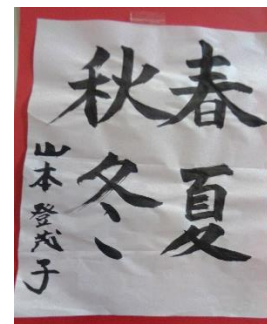 春夏
秋冬
山本登茂子